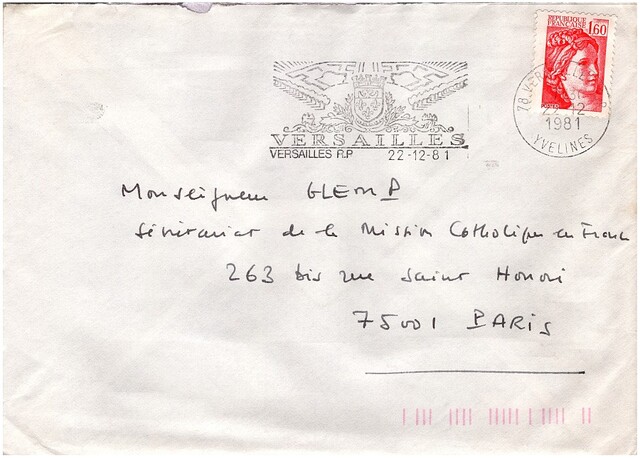 REPUBLIQUE
FRANÇAISE
1,60
POSTES
78.VER
22-12
1981
YVELINES
VERSAILLES
VERSAILLES R.P 22-12-81
Monseigneur GLEMP
Sécrétariat de la Mission Catholique en France
263 bis rue Saint Honoré
75001 PARIS